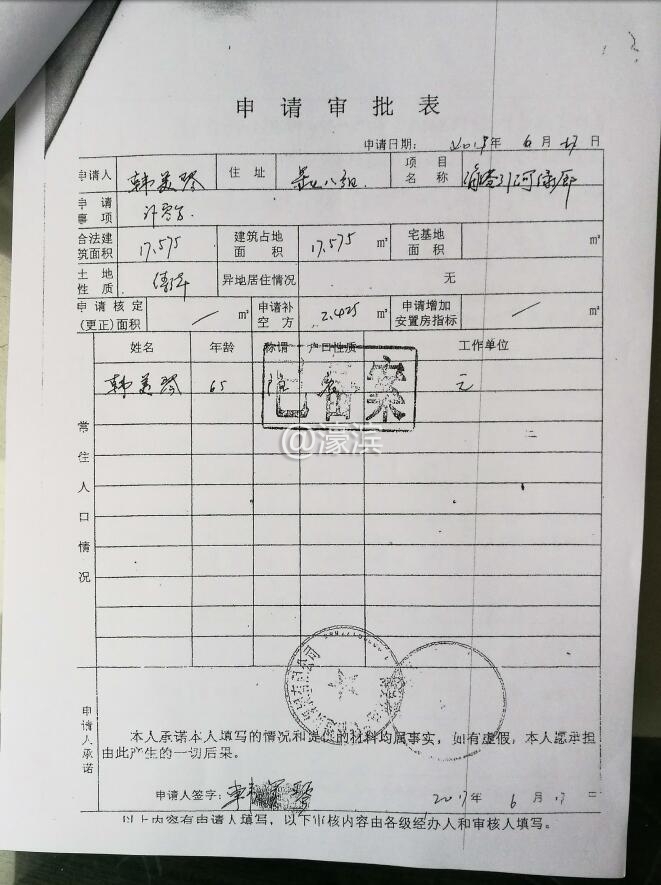 申请审批表
申请日期: 年 6 月 日
申请人 韩美琴 住址 八组 项目名称
申请事项
合法建筑面积 17.575 建筑占地面积 17.575 m² 宅基地面积 m²
土地性质 异地居住情况 无
申请核定(更正)面积 / m² 申请补空方 2.425 m² 申请增加安置房指标 /
姓名 年龄 称谓 户口性质 工作单位
韩美琴 65
常住人口情况
@濛滨
申请人承诺
本人承诺本人填写的情况和提供的材料均属事实,如有虚假,本人愿承担
由此产生的一切后果。
申请人签字: 2017 年 6 月
以上内容有申请人填写,以下审核内容由各级经办人和审核人填写。